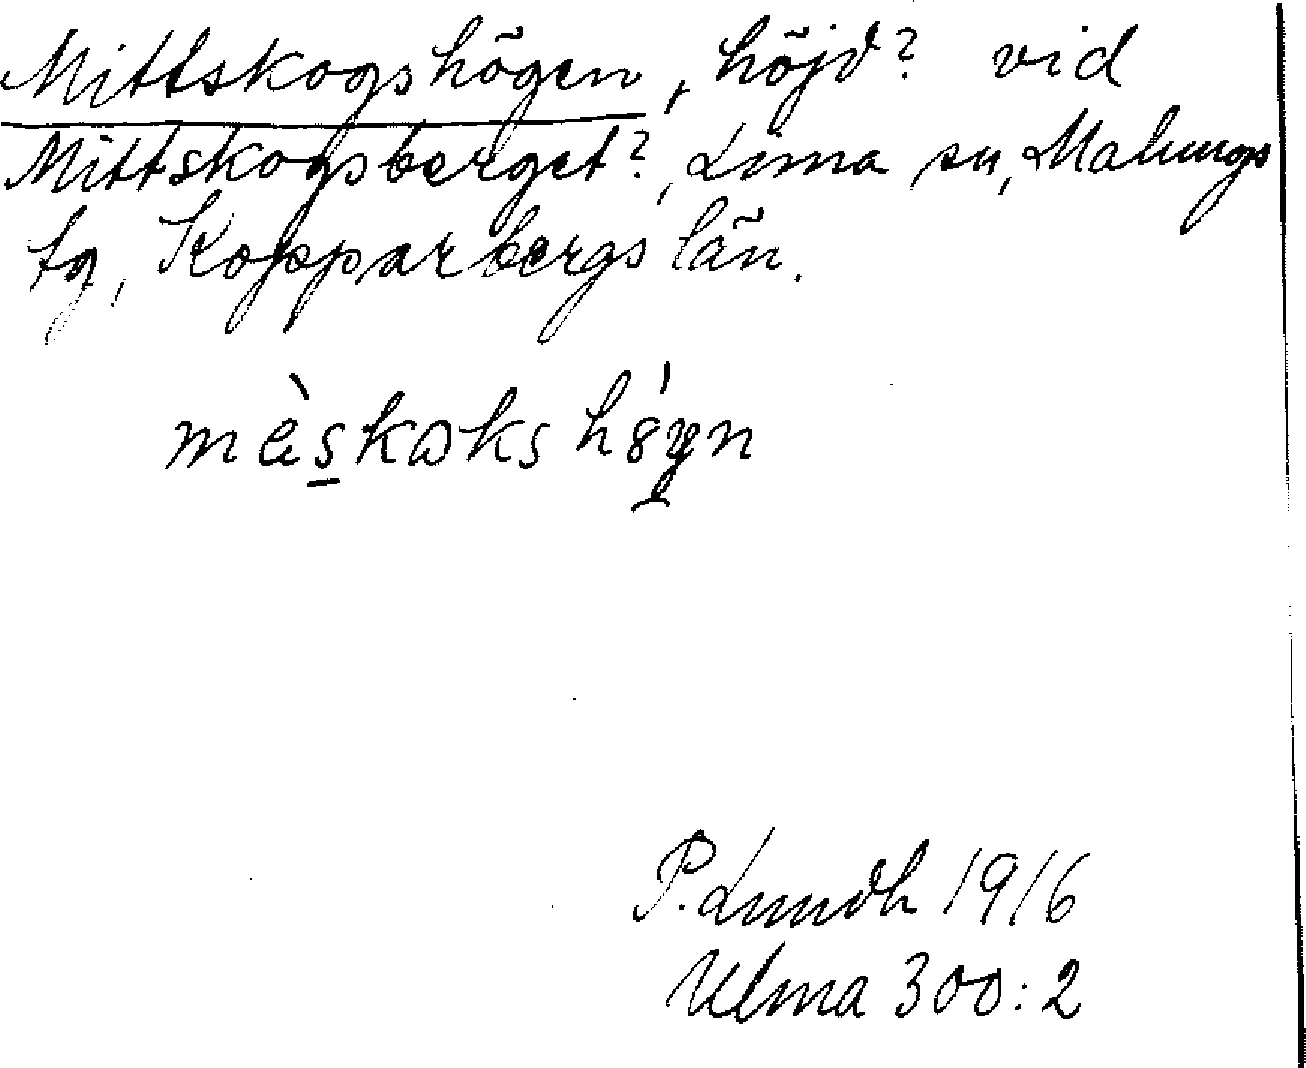 Mittskogshögen, höjd? vid
Mittskogsberget?, Lima sn, Malungs
tg, Kopparbergs län.
mèskɷkshýn
P. Lundh 1916
Ulma 300:2